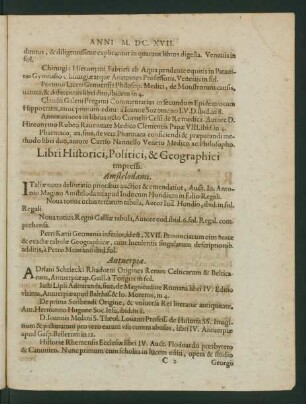 ANNI M. DC. XVII.
dimus, & diligentissimè explicantur in quatuor libros digesta. Venetiis in
fol.
Chirurgia Hieronymi Fabricii ab Aqua pendente equitis in Patavi-
no Gymnasio Chirurgiae atque Anatomes Professoris, Venetiis in fol.
Fortunii Liceti Genuensis Philosoph. Medici, de Monstrorum caussis,
natura, & differentiis libri duo, ibidem in 4.
Claudii Galeni Pergami Commentarius in secundum Epidemiorum
Hippocratis, nunc primum editus à Joanne Sozomeno I.V.D. ibid. in 8.
Annotationes in libros octo Cornelii Celsi de Re medica. Autore D.
Hieronymo Rubeo Ravennate Medico Clementis Papae VIII. ibid. in 4.
Pharmaco, an, sive, de vera Pharmaca conficiendi & praeparandi me-
thodo libri duo, autore Curtio Marinello Veneto Medico ac Philosopho.
Libri Historici, Politici, & Geographici
impressi.
Amstelodami.
ITaliae vatos delineatio priore luce auctior & emendatior, Auct. Io. Anto-
nio Magino Amstelodami apud Iudocum Hondium in folio Regali.
Nova totius orbis terrarum tabula, Autore Iud. Hondio, ibid. in fol.
Regali.
Nova totius Regni Galliae tabula, Autore eod. ibid. 6. fol. Regal. compre-
hensis.
Petri Kaerii Germania inferior, id est, XVII. Provinciarum eius novae
& exactae tabulae Geographicae, cum luculentis singularum descriptionib.
additis, à Petro Montano ibid. fol.
Antverpiae.
ADriani Schrieckii Rhodorni Origines Rerum Celticarum & Belgica-
rum, Antverpiae apud Guil. à Tongris in fol.
Iusti Lipsii Admiranda, sive, de Magnitudine Romana libri IV. Editio
ultima, Antverpiae apud Balthas. & Io. Moretos, in 4.
De prima Scribendi Origine, & universa Rei literariae antiquitate,
Aut. Hermanno Hugone Soc. Iesu, ibid. in 8.
D. Ioannis Molani S. Theol. Lovanii Professf. de Historia SS. Imagi-
num & picturarum pro vero earum usu contra abusus, libri IV. Antverpiae
apud Gasp. Bellerum in 12.
Historiae Rhemensis Ecclesiae libri IV. Auct. Flodoardo presbytero
& Canonico, Nunc primum cum scholiis in lucem editi, opera & studio
C 2
Georgii